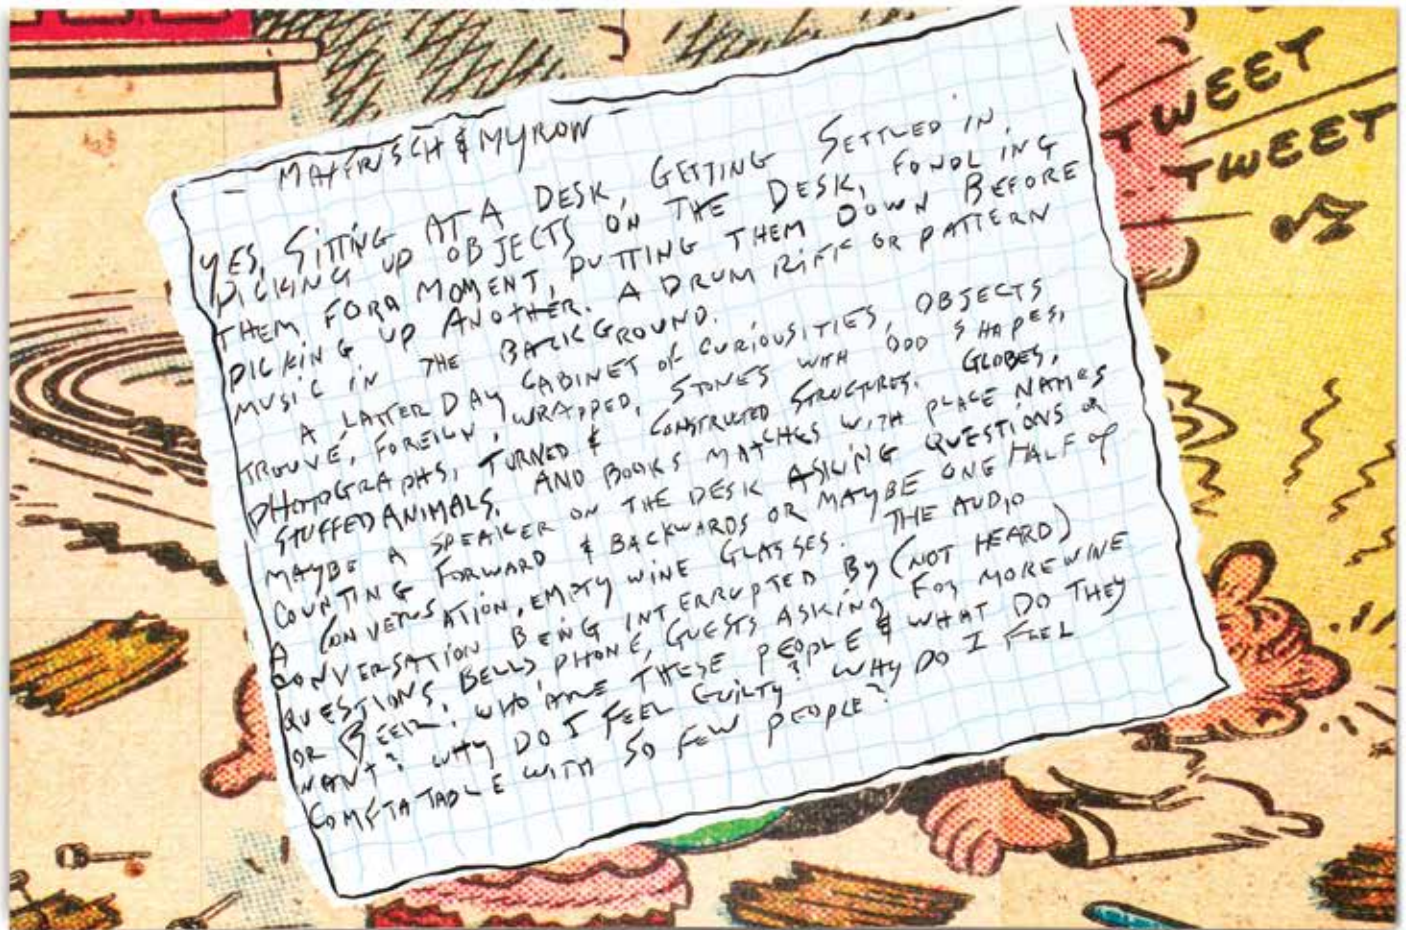 & MYROW –
YES, SITTING AT A DESK, GETTING SETTLED IN,
PICKING UP OBJECTS ON THE DESK, FONDLING
THEM FOR A MOMENT, PUTTING THEM DOWN BEFORE
PICKING UP ANOTHER. A DRUM RIFF OR PATTERN
MUSIC IN THE BACKGROUND.
A LATTER DAY CABINET OF CURIOUSITIES, OBJECTS
TROUVE, FOREIGN, WRAPPED, STONES WITH ODD SHAPES,
PHOTOGRAPHS, TURNED & CONSTRUCTED STRUCTURES. GLOBES,
STUFFED ANIMALS. AND BOOKS MATCHES WITH PLACE NAMES
MAYBE A SPEAKER ON THE DESK ASKING QUESTIONS OR
COUNTING FORWARD & BACKWARDS OR MAYBE ONE HALF OF
A CONVERSATION, EMPTY WINE GLASSES. THE AUDIO
CONVERSATION BEING INTERRUPTED BY (NOT HEARD)
QUESTIONS, BELLS PHONE, GUESTS ASKING FOR MORE WINE
OR BEER. WHO ARE THESE PEOPLE & WHAT DO THEY
WANT? WHY DO I FEEL GUILTY? WHY DO I FEEL
COMFTATABLE WITH SO FEW PEOPLE?
TWEET
TWEET